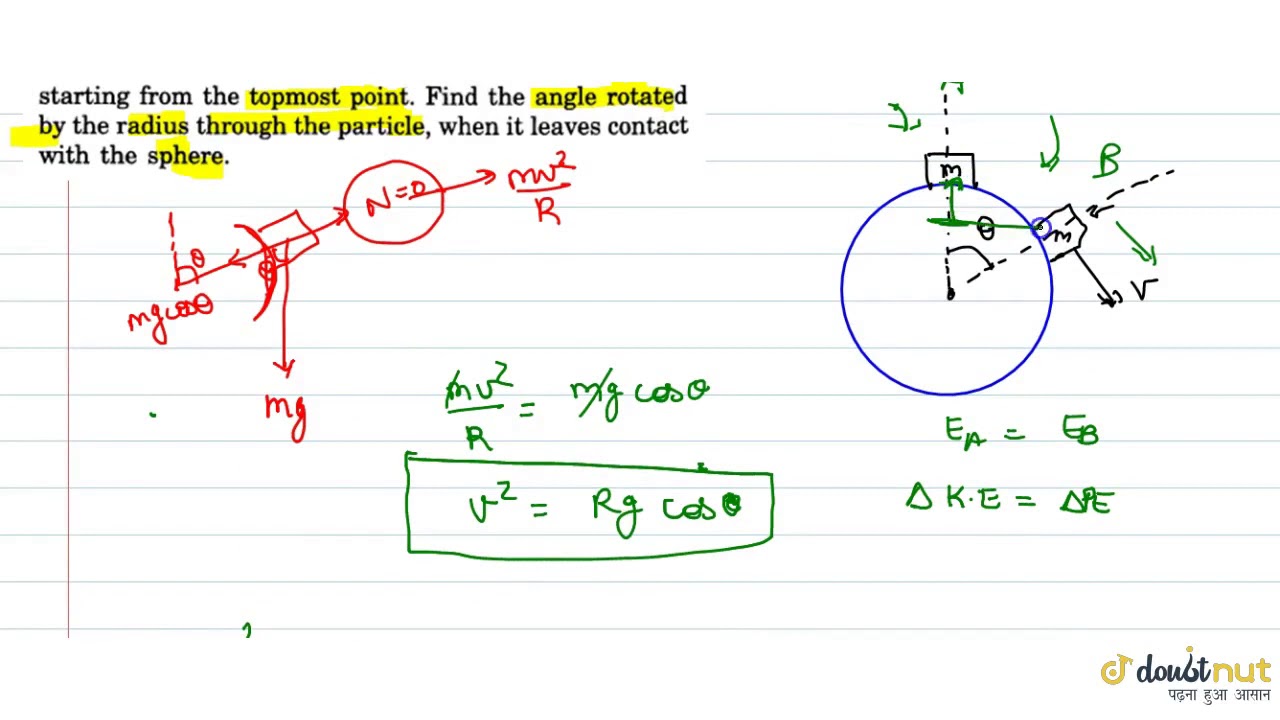 starting from the topmost point. Find the angle rotated
by the radius through the particle, when it leaves contact
with the sphere.
N=0
mv²/R
θ
θ
mg cosθ
mg
m
B
θ
m
v
mv²/R = mg cosθ
v² = Rg cosθ
E_A = E_B
Δ K.E = ΔPE
doubtnut
पढ़ना हुआ आसान